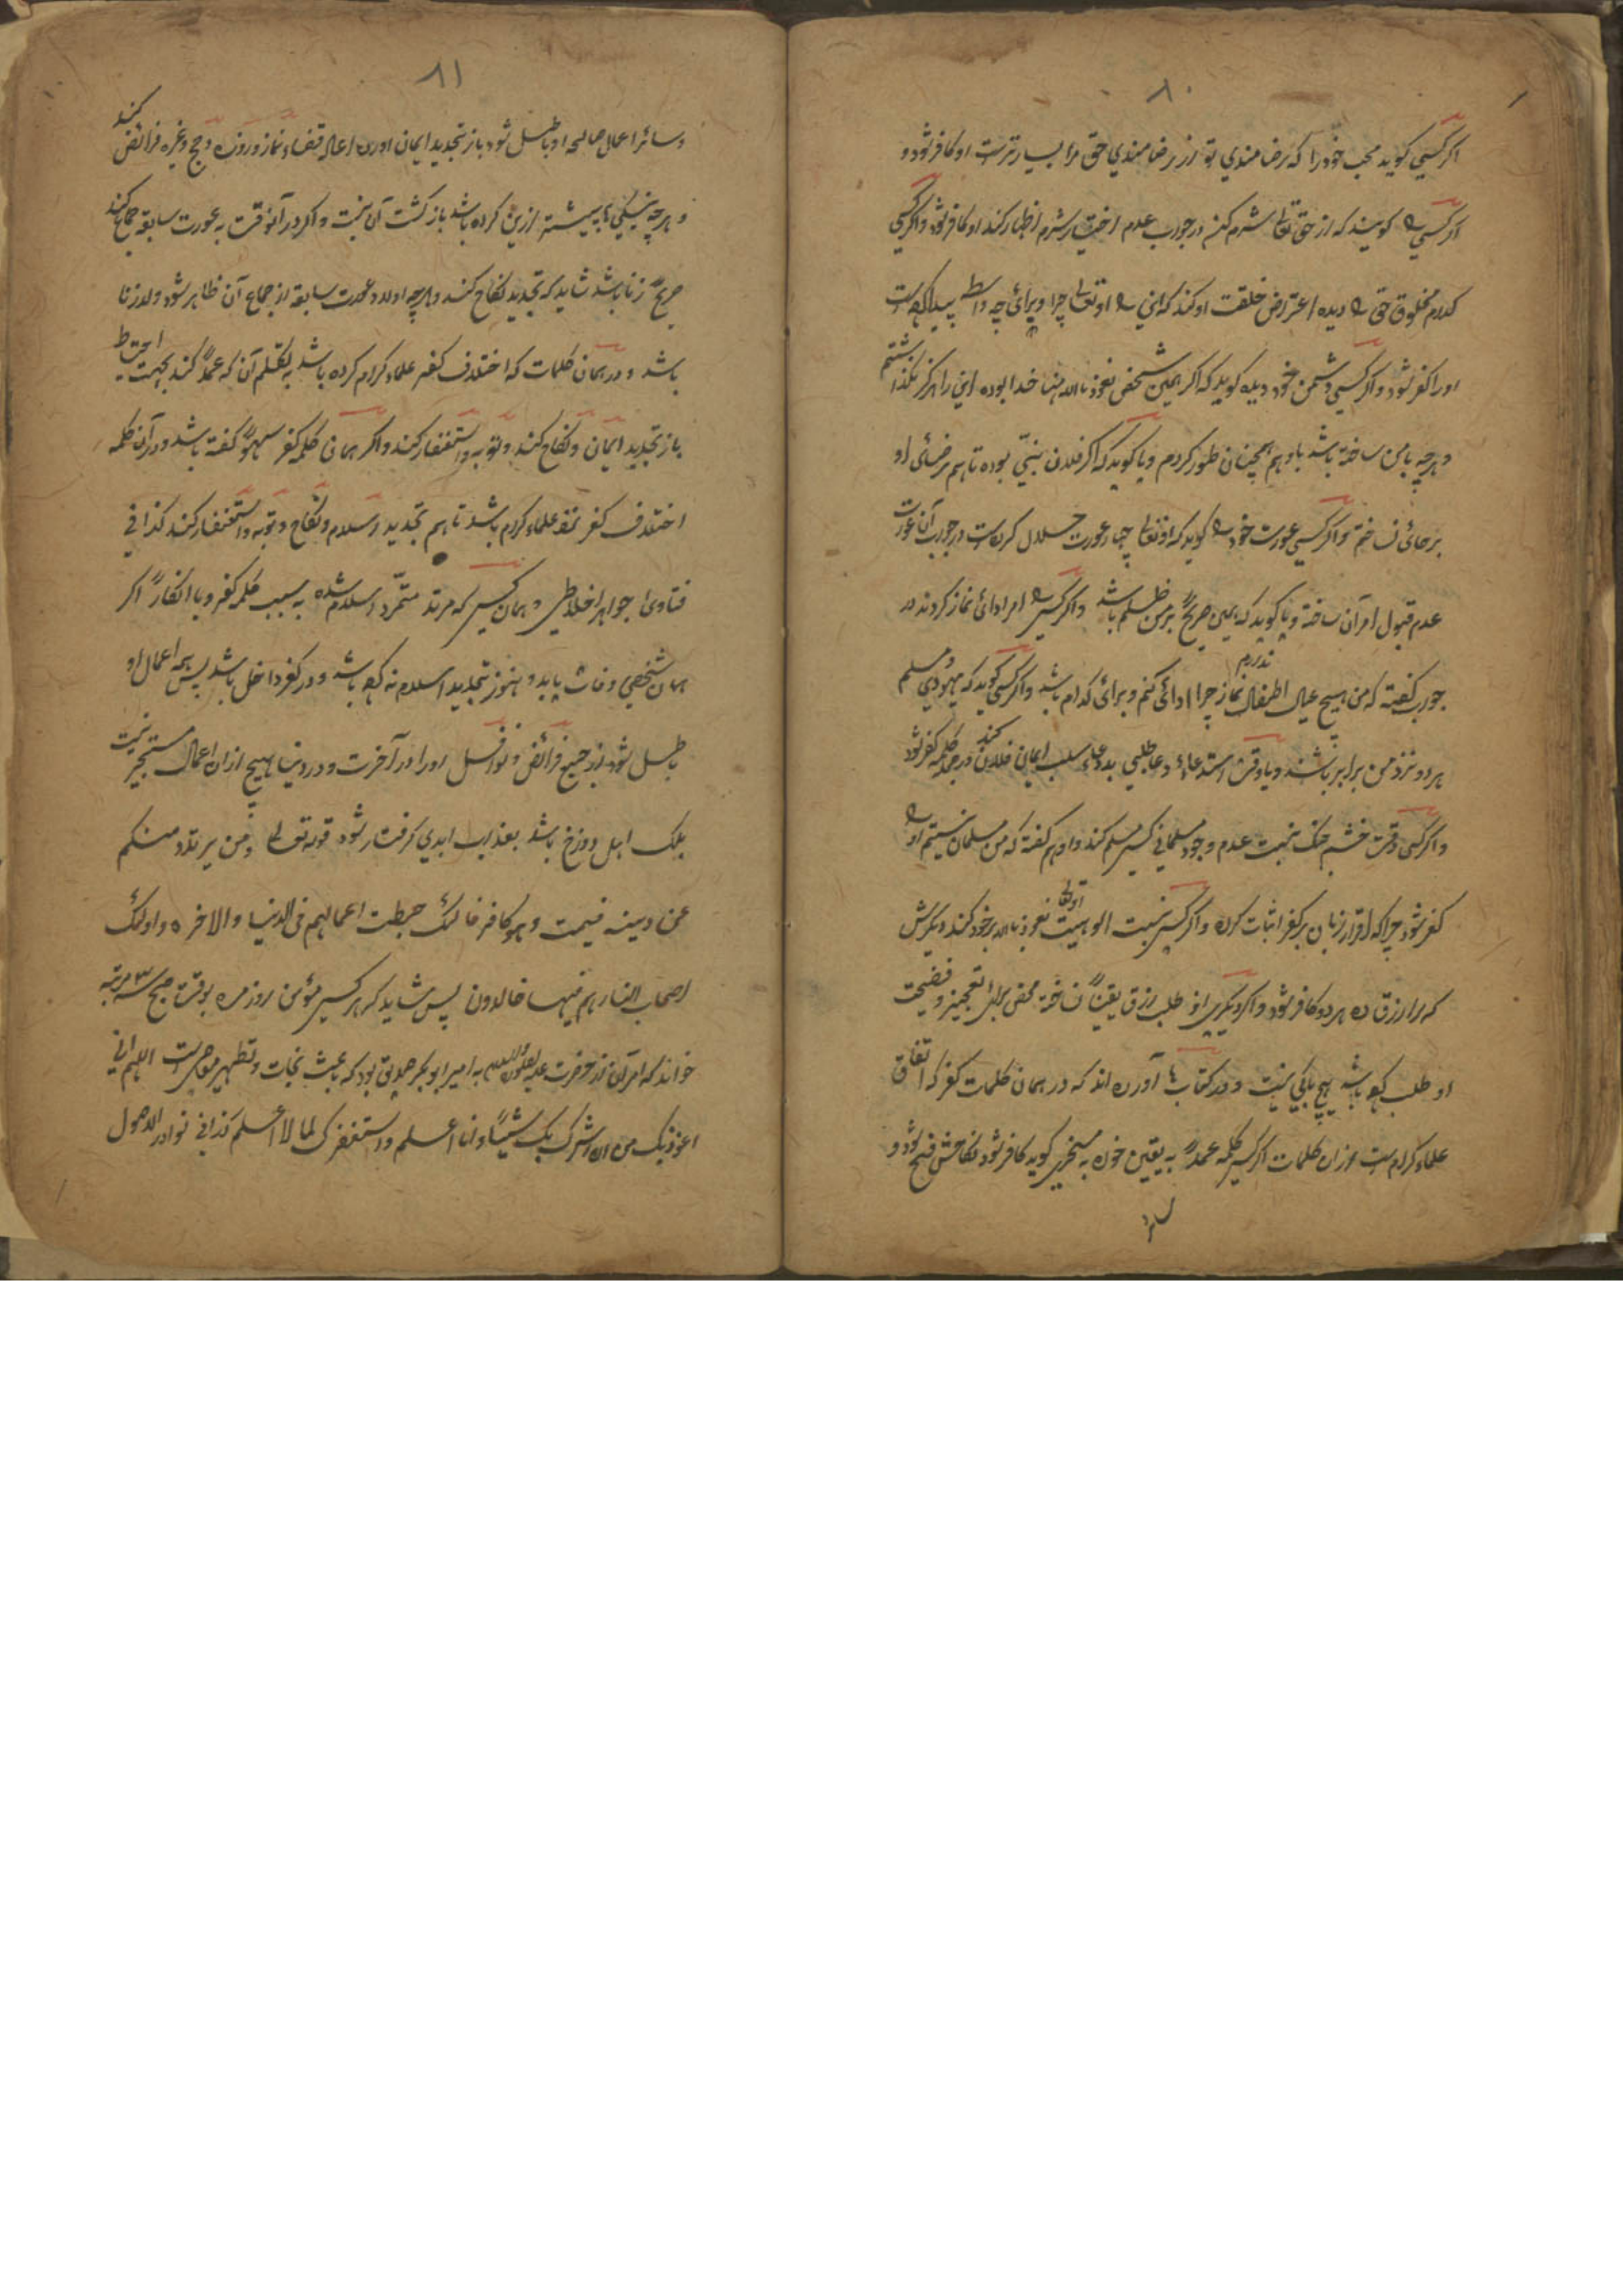 ۸۰
اکر کسی کوید محب خود را که رضامندی تو از رضامندی حق مرا بسیار ترست او کافر شود و
اکر کسی را کویند که از حق تعالی شرم کن در جواب عدم اختیار شرم اظهار کند او کافر شود و اکر کسی
کدام مخلوق حق را دیده اعتراض خلقت او کند که این را او تعالی چرا و برای چه واسطه پیدا کرده است
او را کفر شود و اکر کسی دشمن خود دیده کوید که اکر همین شخص نعوذ بالله منها خدا بوده این را هرکز نکذاشتم
و هرچه با من ساخته باشد با او هم همچنان طور کردم و یا کوید که اکر فلان نبی بوده تا هم رضای او
بر جای نساختم و اکر کسی عورت خود را کوید که او تعالی چهار عورت حلال کرده است در جواب آن عورت
عدم قبول امر آن ساخته و یا کوید که همین صریح بر من ظلم باشد و اکر کسی را امر ادائی نماز کردند در
جواب کفته که من هیچ عیال اطفال ندارم نماز چرا ادائی کنم و برای کدام باشد و اکر کسی کوید که یهودی و مسلم
هر دو نزد من برابر باشند و یا وقت استدعاء دعا طلبی بدعاء سلب ایمان فلان کند در جمله کلمه کفر شود
و اکر کسی وقت خشم جنک نسبت عدم وجود مسلمانی کسی مسلم کند و او هم کفته که من مسلمان نیستم او را
کفر شود چرا که اقرار زبان بر کفر اثبات کرده و اکر کسی نسبت الوهیت او تعالی نعوذ بالله بر خود کند و دیکرش
که مرا رزق ده هر دو کافر شود و اکر دیکری از طلب رزق یقینا نساخته محض برای تعجیز و فضیحت
او طلب کرده باشد هیچ باکی نیست و در کتاب ها آورده اند که در همان کلمات کفر که اتفاق
علماء کرام ست از ان کلمات اکر کسی کلمه عمدا به یقین خود به مسخری کوید کافر شود نکاحش فسخ شود و
۸۱
و سائر اعمال صالحه او باطل شود باز تجدید ایمان آورده اعاده قضاء نماز و روزه و حج و غیره فرائض کند
و هرچه نیکی ها پیشتر ازین کرده باشد باز کشت آن نیست و اکر در آنوقت به عورت سابقه جماع کند
صریح زنا باشد شاید که تجدید نکاح کند و هرچه اولاد عورت سابقه از جماع آن ظاهر شود ولد زنا
باشد و در همان کلمات که اختلاف کفر علماء کرام کرده باشد به تکلم آن که عمدا کند بجهت احتیاط
باز تجدید ایمان و نکاح کند و توبه و استغفار کند و اکر همان کلمه کفر سهوا کفته باشد و در آن کلمه
اختلاف کفر نزد علماء کرام باشد تا هم تجدید اسلام و نکاح و توبه و استغفار کند کذا فی
فتاوی جواهر اخلاطی و همان کسی که مرتد متمرد اسلام شده به سبب کلمه کفر و یا انکار اکر
همان شخص وفات یابد و هنوز تجدید اسلام نه کرده باشد و در کفر داخل باشد پس همه اعمال او
باطل شود از جمیع فرائض و نوافل او را در آخرت و در دنیا هیچ از ان اعمال مستجیر نیست
بلکه اهل دوزخ باشد بعذاب ابدی کرفتار شود قوله تعالی ومن یرتدد منکم
عن دینه فیمت وهو کافر فاولئک حبطت اعمالهم فی الدنیا والاخره واولئک
اصحاب النار هم فیها خالدون پس شاید که هر کسی مؤمن روزمره بوقت صبح سه مرتبه
خواند که امر آن از حضرت علیه الصلوة والسلام به امیر ابوبکر صدیق بود که باعث نجات و تطهیر معاصی ست اللهم انی
اعوذ بک من ان اشرک بک شیئا وانا اعلم واستغفرک لما لا اعلم کذا فی نوادر الاصول